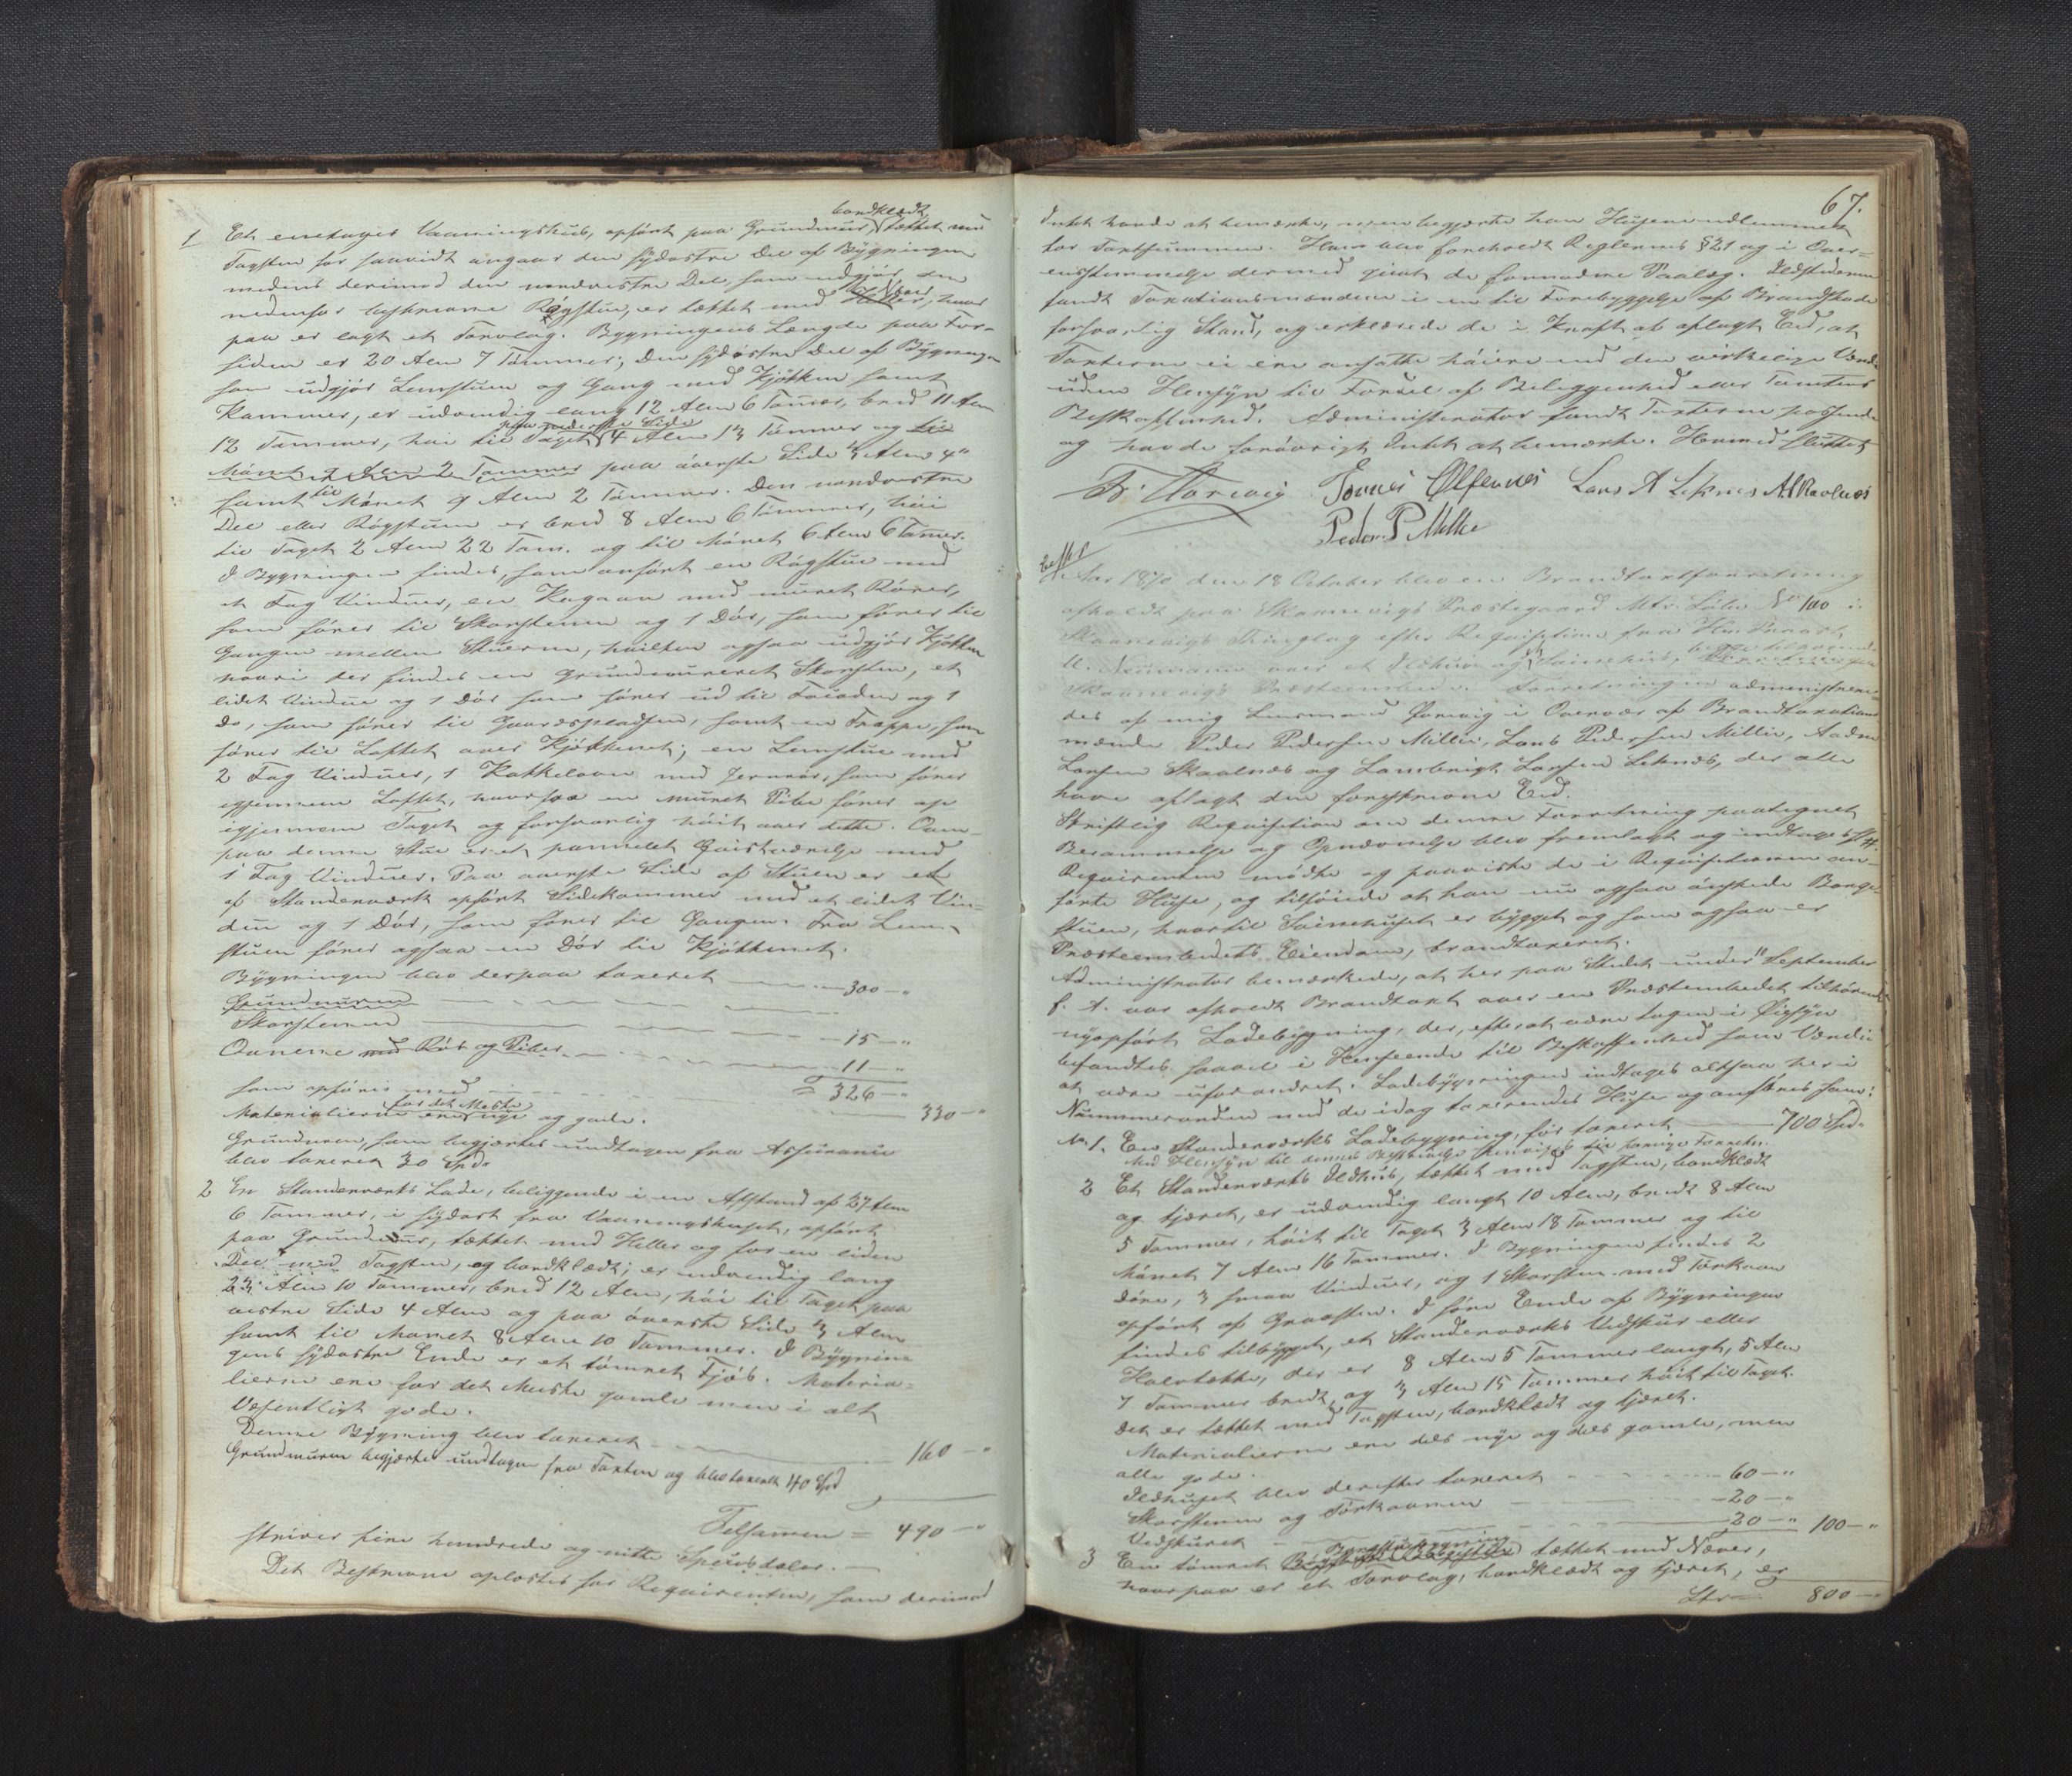 bordklædt
1 Et enetages Vaaningshus, opført paa Grundmuur, tækket med
Tagsten for saavidt angaar den sydøstre Del af Bygningen
medens derimod den nordvestre Del, som udgjør den
Næver
nedenfor beskrevne Røgstue, er tækket med Heller, hvor
paa er lagt et Torvlag. Bygningens Længde paa For-
siden er 20 Alen 7 Tommer; den sydøstre Del af Bygningen
som udgjør Lemstuen og Gang med Kjøkken samt
Kammer, er udvendig lang 12 Alen 6 Tommer, bred 11 Alen
paa nederste Side
12 Tommer, høi til Taget 4 Alen 13 Tommer og til
Mønet 7 Alen 2 Tommer paa øverste Side 3 Alen 4"
samt til Mønet 7 Alen 2 Tommer. Den nordvestre
Del eller Røgstuen er bred 8 Alen 6 Tommer, høi
til Taget 2 Alen 22 Tom. og til Mønet 6 Alen 6 Tommer.
I Bygningen findes, som anført en Røgstue med
et Fag Vinduer, en Kogeovn med muret Rører,
som fører til Skorstenen og 1 Dør, som fører til
Gangen mellem Stuerne, hvilken ogsaa udgjør Kjøkken
hvori der findes en grundmuret Skorsten, et
lidet Vindue og 1 Dør som fører ud til Forsiden og 1
do, som fører til Gaardspladsen, samt en Trappe, som
fører til Loftet over Kjøkkenet; en Lemstue med
2 Fag Vinduer, 1 Kakkelovn med Jernrør, som fører
igjennem Loftet, hvorfra en muret Pibe fører op
igjennem Taget og forsvarlig høit over dette. Oven-
paa denne Stue er et pannelet Gjæsteværelse med
1 Fag Vinduer. Paa øverste Side af Stuen er et
af Standerværk opført Sidekammer med et lidet Vin-
due og 1 Dør, som fører til Gangen. Fra Lem-
stuen fører ogsaa en Dør til Kjøkkenet.
Bygningen blev derpaa taxeret 300 — "
Grundmuren
Skorstenen 15 — "
Ovnene med Rør og Piber 11 — "
326 — "
som opføres med 330 — "
for det Meste
Materialierne ere nye og gode.
Grundmuren, som begjærtes undtagen fra Assurance
blev taxeret 30 Spd.
2 En Standerværks Lade, beliggende i en Afstand af 27 Alen
6 Tommer, i sydost fra Vaaningshuset, opført
paa Grundmuur, tækket med Heller og for en liden
Deel med Tagsten, og bordklædt; er udvendig lang
23 Alen 10 Tommer, bred 12 Alen, høi til Taget paa
vestre Side 4 Alen og paa øverste Side 3 Alen
samt til Mønet 8 Alen 10 Tommer. I Bygnin-
gens sydøstre Ende er et tømret Fjøs. Materia-
lierne ere for det Meste gamle men i alt
Væsentligt gode.
Denne Bygning blev taxeret 160 — "
Grundmuren begjærtes undtagen fra Taxten og blev taxeret 40 Spd
Tilsammen = 490 — "
skriver fire hundrede og nitti Speciedaler.
Det Beskrevne oplæstes for Requirenten, som derimod
67.
Intet havde at bemærke, men begjærte han Husene indlemmet
for Taxtsummen. Ham blev foreholdt Reglernes § 21 og i Over-
ensstemmelse dermed givet de fornødne Paalæg. Ildstederne
fandt Taxationsmændene i en til Forebyggelse af Brandskade
forsvarlig Stand, og erklærede de i Kraft af aflagt Eed, at
Taxterne ei ere ansatte høiere end den virkelige Værdi
uden Hensyn til Fordel af Beliggenhed eller Tomtens
Beskaffenhed. Administrator fandt Taxterne passende
og havde forøvrigt Intet at bemærke. Hermed sluttet
Tønnes Ølfernes Lars A Leknes
Peder P Milke
Aar 1870 den 18 October blev en Brandtaxtforretning
afholdt paa Skaanevigs Præstegaard Mtr. Løbe No 100 i
Skaanevigs Thinglag efter Requisition fra Hr. Provst
Neumann over et Ildhus og Svinehus, begge tilhørende
Skaanevigs Præsteembede. Forretningen administrere-
des af mig Lensmand Horvig i Overvær af Brandtaxations
mændene Peder Pedersen Millie, Lars Pedersen Millie, Aadne
Larsen Skaalnes og Lambrigt Larsen Leknes, der alle
have aflagt den foreskrevne Eed.
Skriftlig Requisition om denne Forretning paategnet
Berammelse og Opnævnelse blev fremlagt og indtages
Requirenten mødte og paaviste de i Requisitionen an-
førte Huse, og tilføiede at han nu ogsaa ønskede Borge-
stuen, hvortil Svinehuset er bygget og som ogsaa er
Præsteembedets Eiendom, brandtaxeret.
Administrator bemærkede, at her paa Stedet under " September
f. A. var afholdt Brandtaxt over en Præsteembedet tilhørende
nyopført Ladebygning, der, efter at være tagen i Øiesyn
befandtes saavel i Henseende til Beskaffenhed som Værdi
at være uforandret. Ladebygningen indtages altsaa her i
Nummerorden med de idag taxerende Huse og anføres som:
No 1. En Standerværks Ladebygning, før taxeret 700 Spd.
Med Hensyn til dennes Beskrivelse henvises til forrige Forretn.
2 Et Standerværks Ildhus, tækket med Tagsten, bordklædt
og tjæret, er udvendig langt 10 Alen, bredt 8 Alen
5 Tommer, høit til Taget 3 Alen 18 Tommer og til
Mønet 7 Alen 16 Tommer. I Bygningen findes 2
Døre, 3 smaa Vinduer, og 1 Skorsten med Tørkeovn
opført af Graasten. I søre Ende af Bygningen
findes tilbygget, et Standerværks Vedskur eller
Halvtække, der er 8 Alen 5 Tommer langt, 5 Alen
7 Tommer bredt, og 3 Alen 15 Tommer høit til Taget.
Det er tækket med Tagsten, bordklædt og tjæret.
Materialierne ere dels nye og dels gamle, men
alle gode.
Ildhuset blev derefter taxeret 60 — "
Skorstenen og Tørkeovnen 20 — "
Vedskuret 20 — " 100 — "
Borgstuebygning
3 En tømret tækket med Næver,
hvorpaa er et Torvlag, bordklædt og tjæret, er
Ltr 800 — "